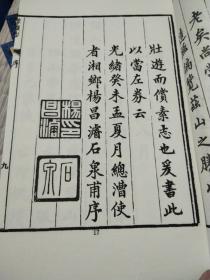 老矣尚
覽茲山之
壯遊而償素志也爰書此
以當左券云
光緒癸未孟夏月總漕使
者湘鄉楊昌濬石泉甫序
楊印昌濬
石泉
17
序
九